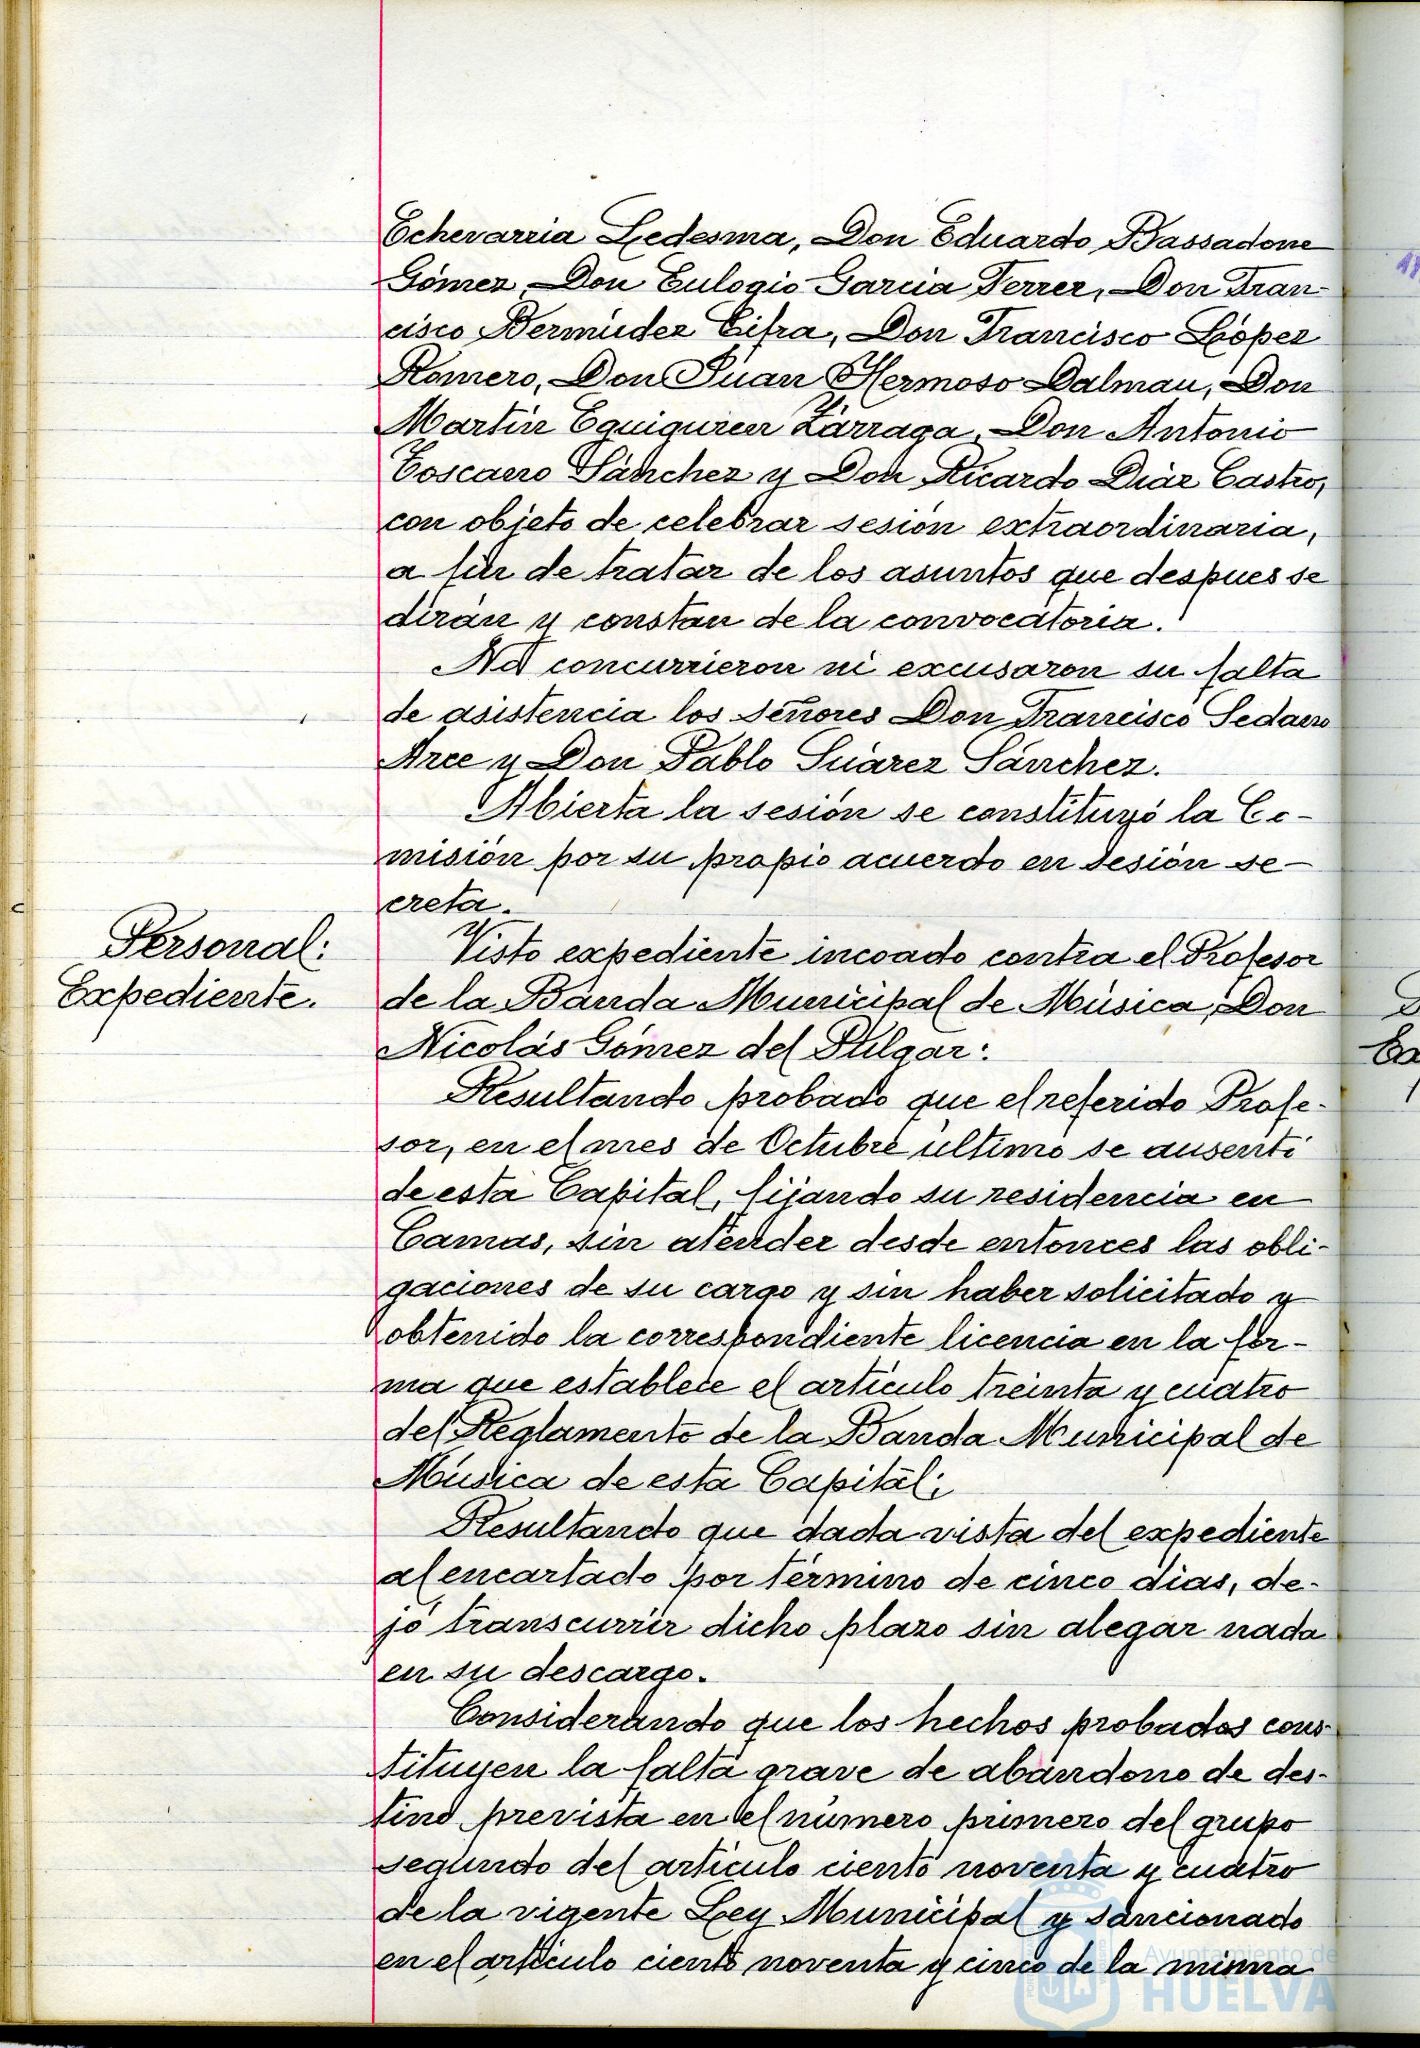 Echevarria Ledesma, Don Eduardo Bassadone
Gómez, Don Eulogio Garcia Ferrer, Don Fran-
cisco Bermúdez Cifra, Don Francisco López
Romero, Don Juan Hermoso Dalmau, Don
Martin Eguiguren Zárraga, Don Antonio
Toscano Sánchez y Don Ricardo Diáz Castro,
con objeto de celebrar sesión extraordinaria,
a fin de tratar de los asuntos que despues se
dirán y constan de la convocatoria.
No concurrieron ni excusaron su falta
de asistencia los señores Don Francisco Sedano
Arce y Don Pablo Súarez Sánchez.
Abierta la sesión se constituyó la Co-
misión por su propio acuerdo en sesión se-
creta.
Personal:
Expediente.
Visto expediente incoado contra el Profesor
de la Banda Municipal de Música, Don
Nicolás Gómez del Pulgar:
Resultando probado que el referido Profe-
sor, en el mes de Octubre último se ausentó
de esta Capital, fijando su residencia en
Camas, sin atender desde entonces las obli-
gaciones de su cargo y sin haber solicitado y
obtenido la correspondiente licencia en la for-
ma que establece el artículo treinta y cuatro
del Reglamento de la Banda Municipal de
Música de esta Capital;
Resultando que dada vista del expediente
al encartado por término de cinco dias, de-
jó transcurrir dicho plazo sin alegar nada
en su descargo.
Considerando que los hechos probados cons-
tituyen la falta grave de abandono de des-
tino prevista en el número primero del grupo
segundo del artículo ciento noventa y cuatro
de la vigente Ley Municipal y sancionado
en el artículo ciento noventa y cinco de la misma
Ayuntamiento de
HUELVA